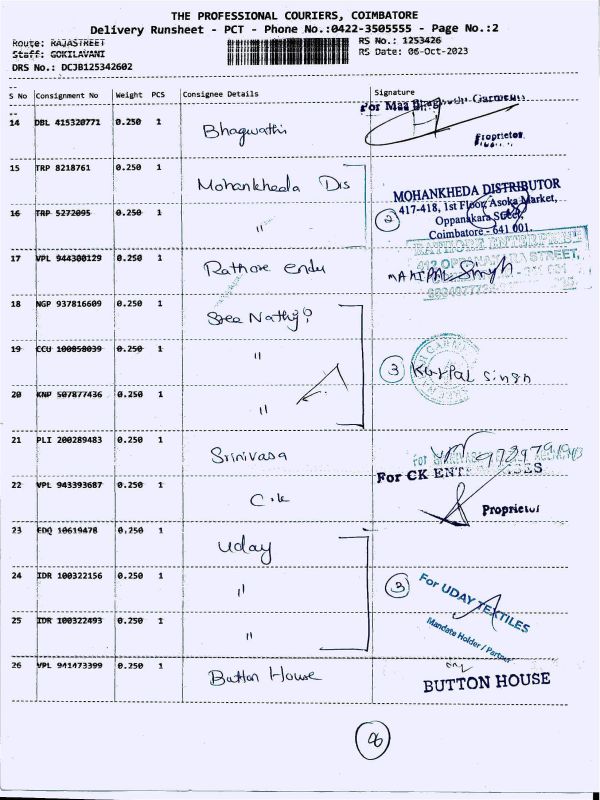 THE PROFESSIONAL COURIERS, COIMBATORE
Delivery Runsheet - PCT - Phone No.:0422-3505555 - Page No.:2
Route: RAJASTREET
RS No.: 1253426
Staff: GOKILAVANI
RS Date: 06-Oct-2023
DRS No.: DCJB125342602
S No Consignment No Weight PCS Consignee Details Signature
For Maa Bhagwathi Garments
14 DBL 415320771 0.250 1 Bhagwathi
Proprietor
15 TRP 8218761 0.250 1 Mohankheda Dis
MOHANKHEDA DISTRIBUTOR
417-418, 1st Floor, Asoka Market,
16 TRP 5272095 0.250 1 "
2
Oppanakara Street,
Coimbatore - 641 001.
RATHORE ENTERPRISE
17 VPL 944300129 0.250 1 Rathore
OPPANAKARA STREET,
MAHIPAL Singh
18 NGP 937816609 0.250 1 Sree Nathji
19 CCU 100858039 0.250 1 "
3 Kurpal Singh
20 KNP 507877436 0.250 1 "
21 PLI 200289483 0.250 1 Srinivasa
For CK ENTERPRISES
22 VPL 943393687 0.250 1 C.k
Proprietor
23 EDQ 10619478 0.250 1 Uday
24 IDR 100322156 0.250 1 "
3
For UDAY TEXTILES
25 IDR 100322493 0.250 1 "
Mandate Holder / Partner
26 VPL 941473399 0.250 1 Button House
BUTTON HOUSE